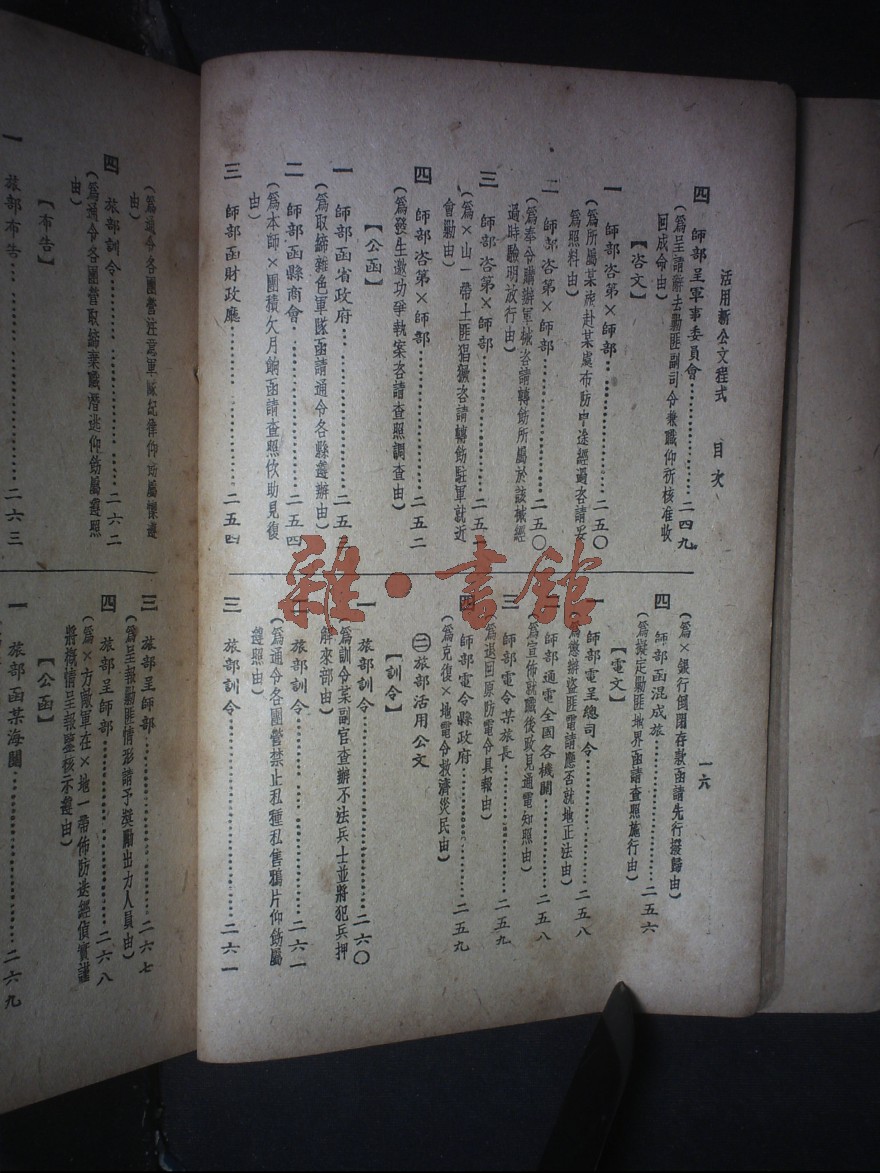 活用新公文程式　目次
一六
四　師部呈軍事委員會……二四九
（爲呈請辭去勦匪副司令兼職仰祈核准收
回成命由）
【咨文】
一　師部咨第×師部……二五〇
（爲所屬某旅赴某處布防中途經過咨請妥
爲照料由）
二　師部咨第×師部……二五〇
（爲奉令購辦軍械咨請轉飭所屬於該械經
過時驗明放行由）
三　師部咨第×師部……二五
（爲×山一帶土匪猖獗咨請轉飭駐軍就近
會勦由）
四　師部咨第×師部……二五二
（爲發生邀功爭執案咨請查照調查由）
【公函】
一　師部函省政府……二五
（爲取締雜色軍隊函請通令各縣遵辦由）
二　師部函縣商會……二五四
（爲本師×團積欠月餉函請查照佽助見復
由）
三　師部函財政廳……二五四
（爲×銀行倒閉存款函請先行撥歸由）
四　師部函混成旅……二五六
（爲擬定勦匪地界函請查照施行由）
【電文】
一　師部電呈總司令……二五八
（爲懲辦盜匪電請應否就地正法由）
二　師部通電全國各機關……二五八
（爲宣佈就職後政見通電知照由）
三　師部電令某旅長……二五九
（爲退回原防電令具報由）
四　師部電令縣政府……二五九
（爲克復×地電令救濟災民由）
㊁旅部活用公文
【訓令】
一　旅部訓令……二六〇
（爲訓令某副官查辦不法兵士並將犯兵押
解來部由）
二　旅部訓令……二六一
（爲通令各團營禁止私種私售鴉片仰飭屬
遵照由）
三　旅部訓令……二六一
（爲通令各團營注意軍隊紀律仰飭屬懍遵
由）
四　旅部訓令……二六二
（爲通令各團營取締棄職潛逃仰飭屬遵照
由）
【布告】
一　旅部布告……二六三
三　旅部呈師部……二六七
（爲呈報勦匪情形請予獎勵出力人員由）
四　旅部呈師部……二六八
（爲×方敵軍在×地一帶佈防迭經偵實謹
將情呈報鑒核示遵由）
【公函】
一　旅部函某海關……二六九
雜·書館